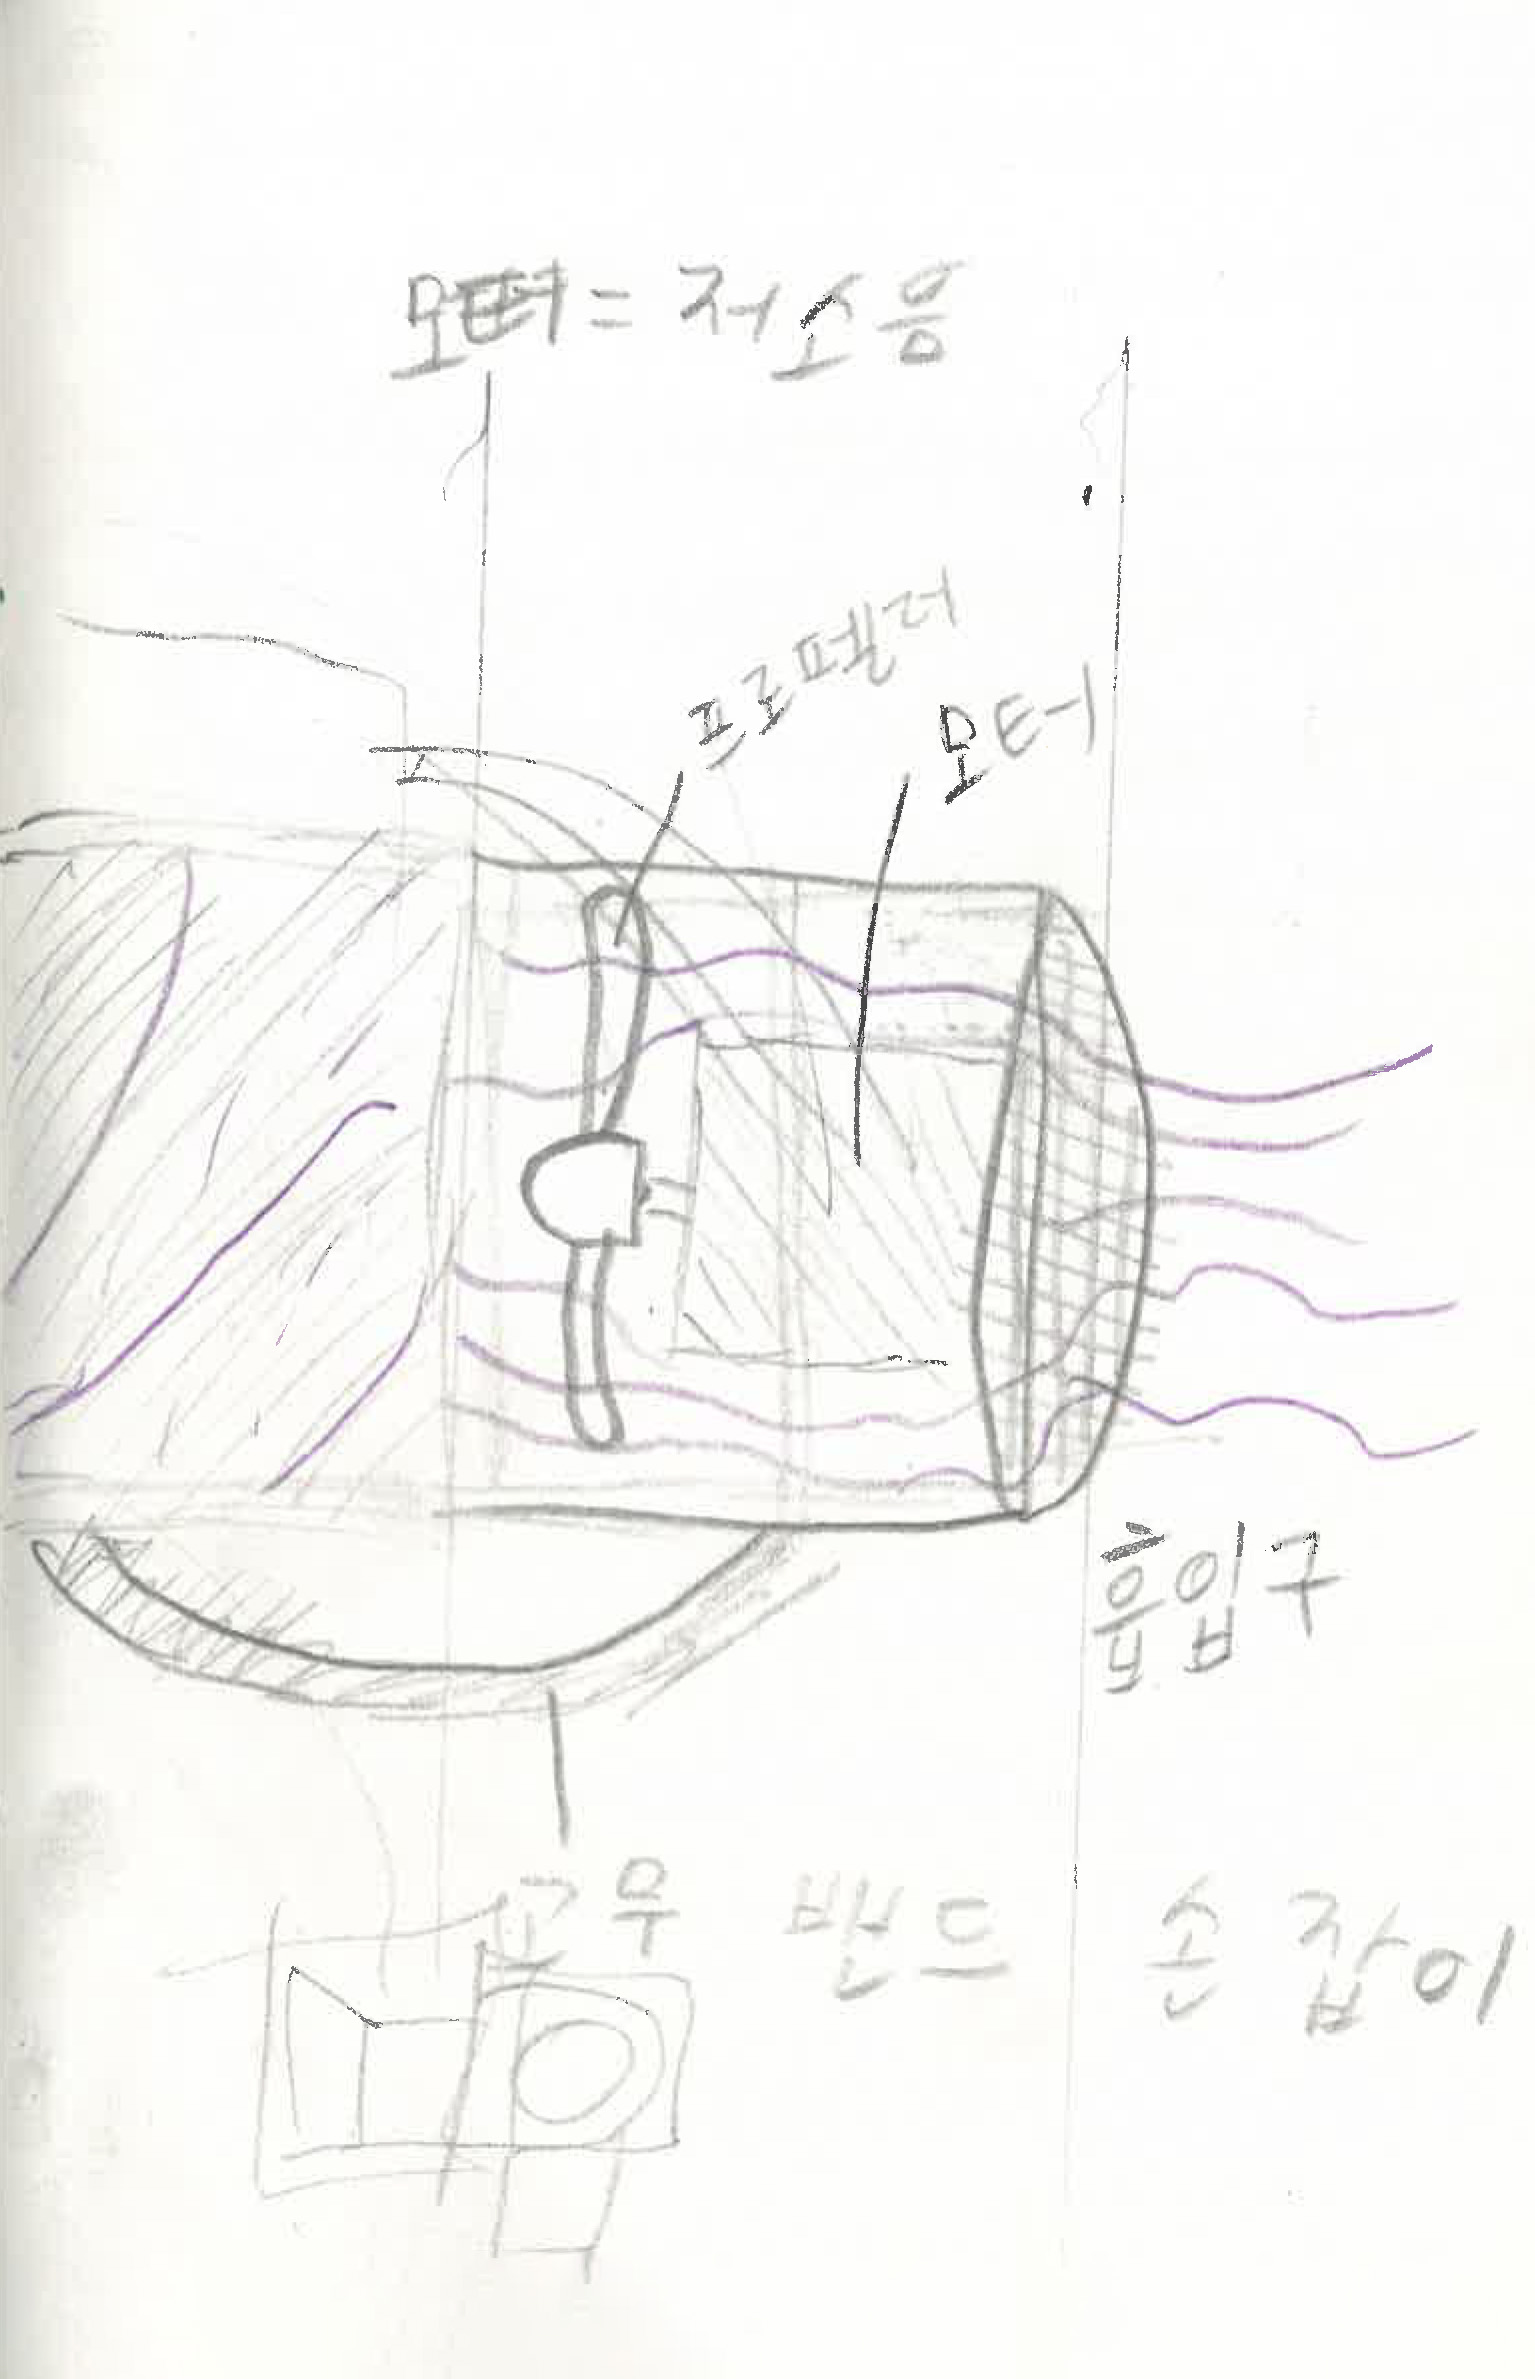 모터 = 저소음
프로펠러
모터
흡입구
고무 밴드 손잡이